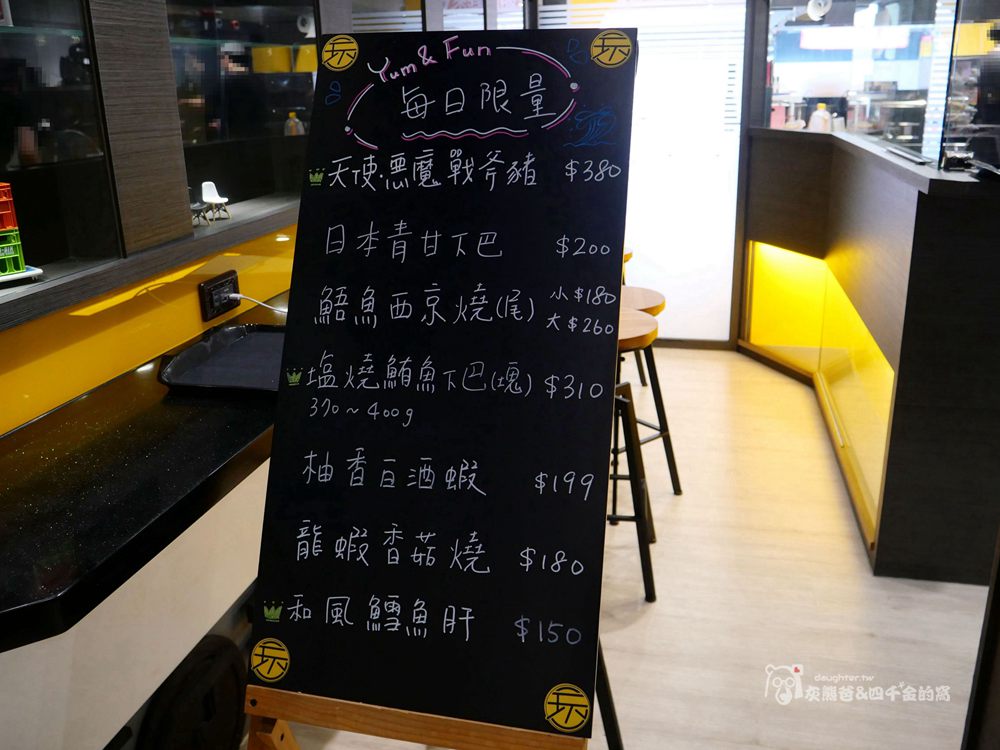 玩 玩
Yum & Fun
每日限量
天使‧惡魔戰斧豬 $380
日本青甘下巴 $200
鯃魚西京燒(尾) 小$180
大$260
塩燒鮪魚下巴(塊) $310
370~400g
柚香白酒蝦 $199
龍蝦香菇燒 $180
和風鱈魚肝 $150
玩 玩
daughter.tw
灰熊爸&四千金的窩